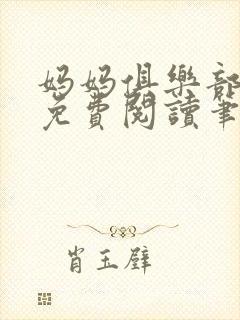 妈妈俱樂部
免費閱讀筆
肖玉壁